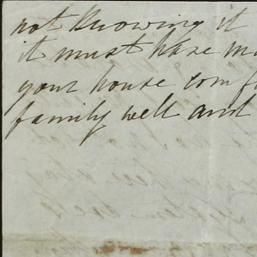 not knowing it
it must have
your house
family well and